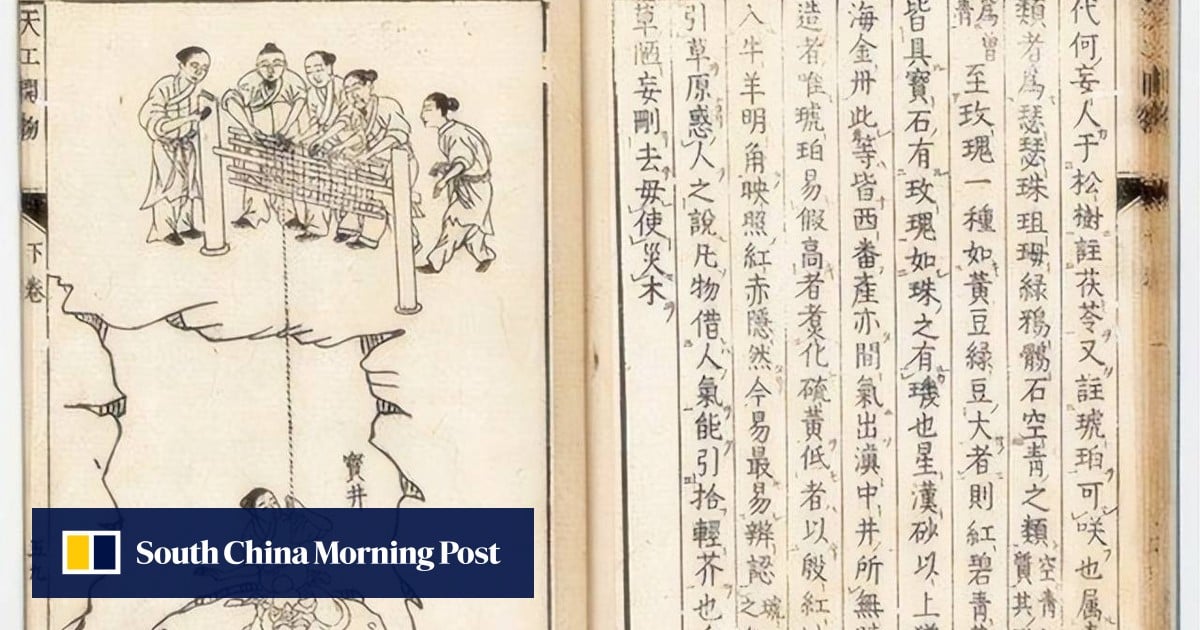 代何妄人于松樹註茯苓又註琥珀可咲也属
類者爲瑟瑟珠珇珻綠鴉鶻石空青之類空青質其
爲曾青至玫瑰一種如黃豆綠豆大者則紅碧青
皆具寶石有玫瑰如珠之有璣也星漢砂以上
海金丹此等皆西番產亦間氣出滇中井所無
造者唯琥珀易假高者煮化硫黃低者以殷紅
入牛羊明角映照紅赤隱然今易最易辨認琥之
引草原惑人之說凡物借人氣能引拾輕芥也
草陋妄刪去毋使災木
寶井
天工開物
下卷
五九
South China Morning Post